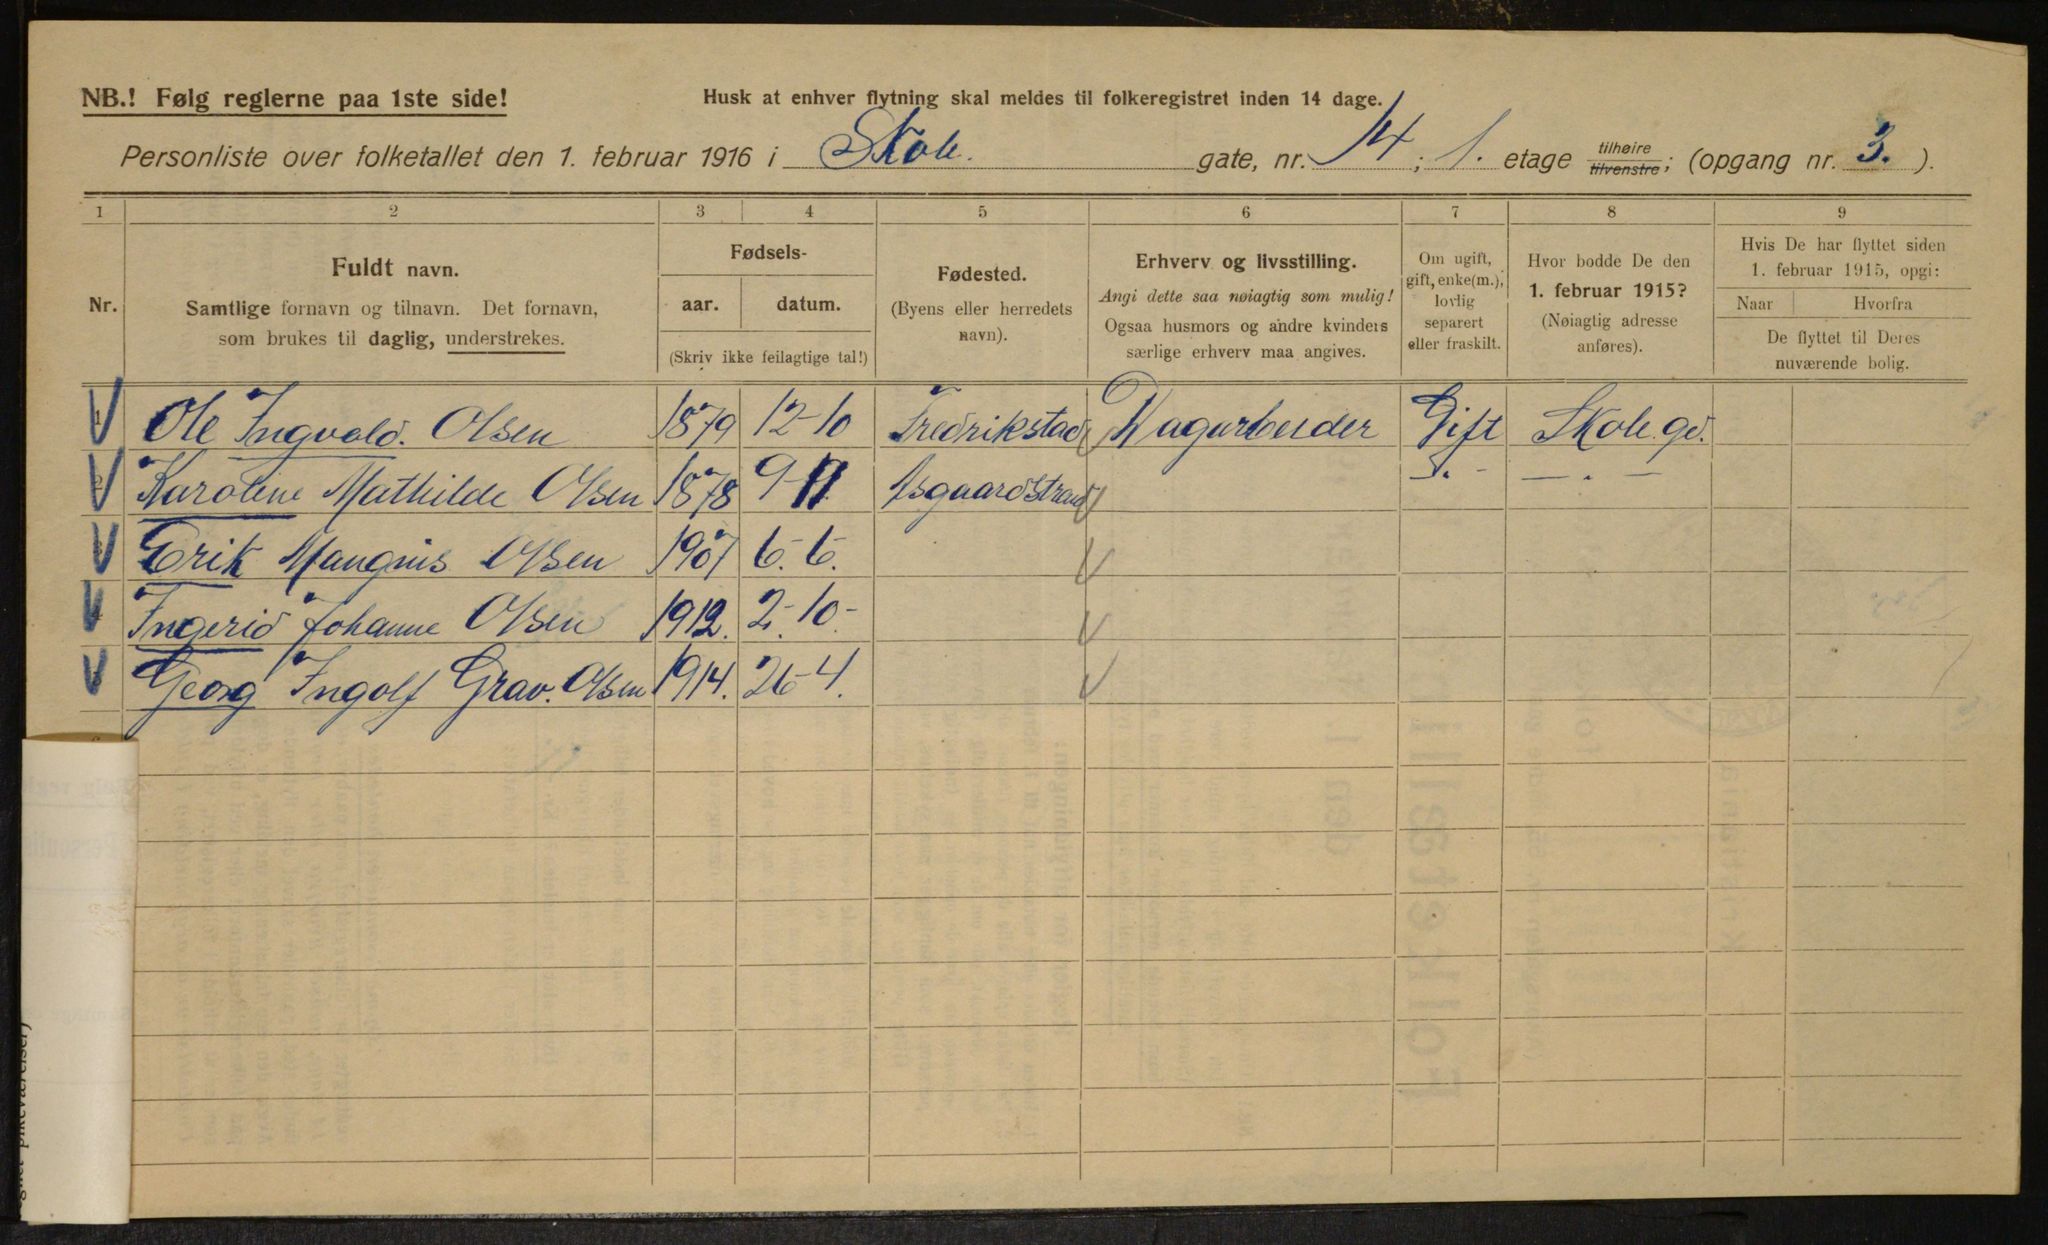 NB.! Følg reglerne paa 1ste side!
Husk at enhver flytning skal meldes til folkeregistret inden 14 dage.
Personliste over folketallet den 1. februar 1916 i Skole. gate, nr. 14; 1. etage tilhøire tilvenstre; (opgang nr. 3.).
1 2 3 4 5 6 7 8 9
Nr.
Fuldt navn.
Samtlige fornavn og tilnavn. Det fornavn,
som brukes til daglig, understrekes.
Fødsels-
aar. datum.
(Skriv ikke feilagtige tal!)
Fødested.
(Byens eller herredets
navn).
Erhverv og livsstilling.
Angi dette saa nøiagtig som mulig!
Ogsaa husmors og andre kvinders
særlige erhverv maa angives.
Om ugift,
gift, enke(m.),
lovlig
separert
eller fraskilt.
Hvor bodde De den
1. februar 1915?
(Nøiagtig adresse
anføres).
Hvis De har flyttet siden
1. februar 1915, opgi:
Naar Hvorfra
De flyttet til Deres
nuværende bolig.
1 Ole Ingvald. Olsen 1879 12-10 Fredrikstad Dagarbeider Gift Skole gd.
2 Karoline Mathilde Olsen 1878 9- Asgaardstrand
3 Erik Mangnus Olsen 1907 6.-6.-
4 Ingerid Johanne Olsen 1912. 2.-10-
Georg Ingolf Grav. Olsen 1914. 26-4.